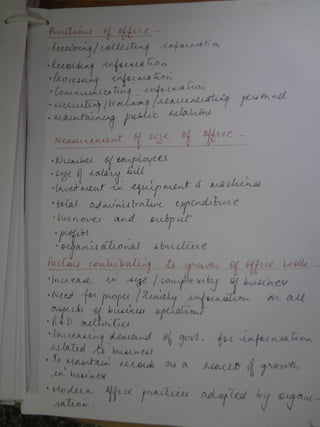 Functions of office -
• Receiving/collecting information
• Recording information
• Processing information
• Communicating information
• recruiting/training/remunerating personnel
• maintaining public relations
Measurement of size of office -
• Number of employees
• size of salary bill
• Investment in equipment & machines
• total administrative expenditure
• turnover and output
• profits
• organisational structure
Factors contributing to growth of office work -
• Increase in size/complexity of business
• Need for proper/timely information on all
aspects of business operations
• R&D activities
• Increasing demand of govt. for information
related to business
• To maintain records as a result of growth
in business
• Modern office practices adopted by organi-
sation.